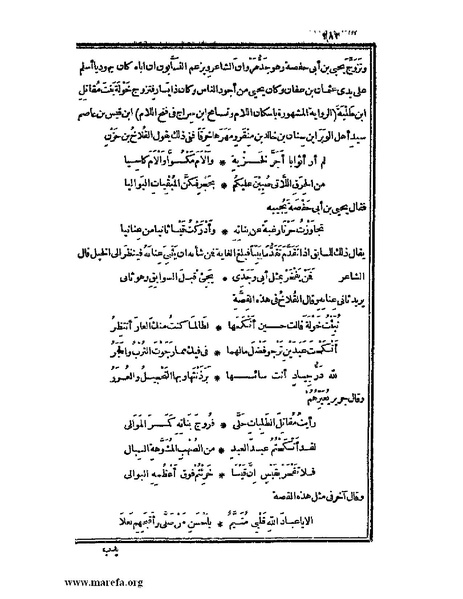 ٢٨٣
وتزوّج يحيى بن أبى حفصة وهو جدّ مروان الشاعر ويزعم النسّابون ان اباه كان يهوديا أسلم
على يدى عثمان بن عفان وكان يحيى من أجود الناس وكان ذا يسار فتزوج خَولة بنت مُقاتل
ابن طَلْبة (الرواية المشهورة باسكان اللام وتسامح ابن سراج فى فتح اللام) ابن قيس بن عاصم
سيد أهل الوبر ابن سنان بن خالد بن منقر ومهرها خرقا ففى ذلك يقول القُلاخ بن حَزن
لم أر أثوابا أجرّ لخزية * وألأم مكسوّا وألأم كاسيا
من الخرق اللاتى صُببن عليكم * بحجر فكنّ المُبقيات البواليا
فقال يحيى بن أبى حفصة يجيبه
تجاوزتُ حَزنا رغبة عن بناته * وأدركت قيسا ثانيا من عنانيا
يقال ذلك للسابق اذا تقدّم تقدّما بيّنا فبلغ الغاية فمن شأنه ان يثنى عنانه فينظر الى الخيل قال
الشاعر فمن يفخر بمثل أبى وجدّى * يجئ قبل السوابق وهو ثانى
يريد ثانى عنانه وقال القُلاخ فى هذه القصّة
نُبّئت خولة قالت حين أنكحها * لطالما كنت منك العار أنتظر
أنكحت عبدين ترجو فضل مالهما * فى فيك مما رجوت الترب والحجر
لله درّ جياد أنت سائسها * برذنتها وبها التحجيل والغرر
وقال جرير يُعيّرهُم
رأيت مُقاتل الطلبات حلّى * فروج بناته كمر الموالى
لقد أنكحتم عبدا لعبد * من الصُهب المُشوّهة السبال
فلا تفخر بقيس انّ قيسا * خرئتم فوق أعظمه البوالى
وقال آخر فى مثل هذه القصة
ألا يا عباد الله قلبى متيّم * بأحسن من صلّى وأقبحهم بعلا
يدب
www.marefa.org